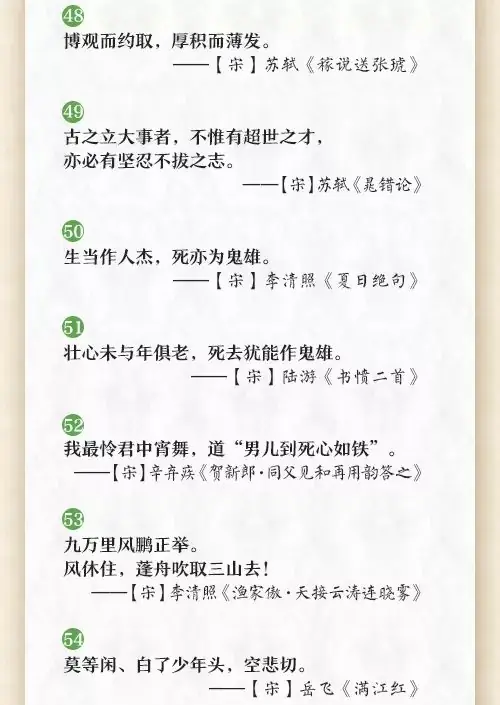 48
博观而约取，厚积而薄发。
——【 宋 】苏轼《稼说送张琥》
49
古之立大事者，不惟有超世之才，
亦必有坚忍不拔之志。
——【宋】苏轼《晁错论》
50
生当作人杰，死亦为鬼雄。
——【 宋 】李清照《夏日绝句》
51
壮心未与年俱老，死去犹能作鬼雄。
——【 宋 】陆游《书愤二首》
52
我最怜君中宵舞，道“男儿到死心如铁”。
——【宋】辛弃疾《贺新郎·同父见和再用韵答之》
53
九万里风鹏正举。
风休住，蓬舟吹取三山去！
——【宋】李清照《渔家傲·天接云涛连晓雾》
54
莫等闲、白了少年头，空悲切。
——【 宋 】岳飞《满江红》